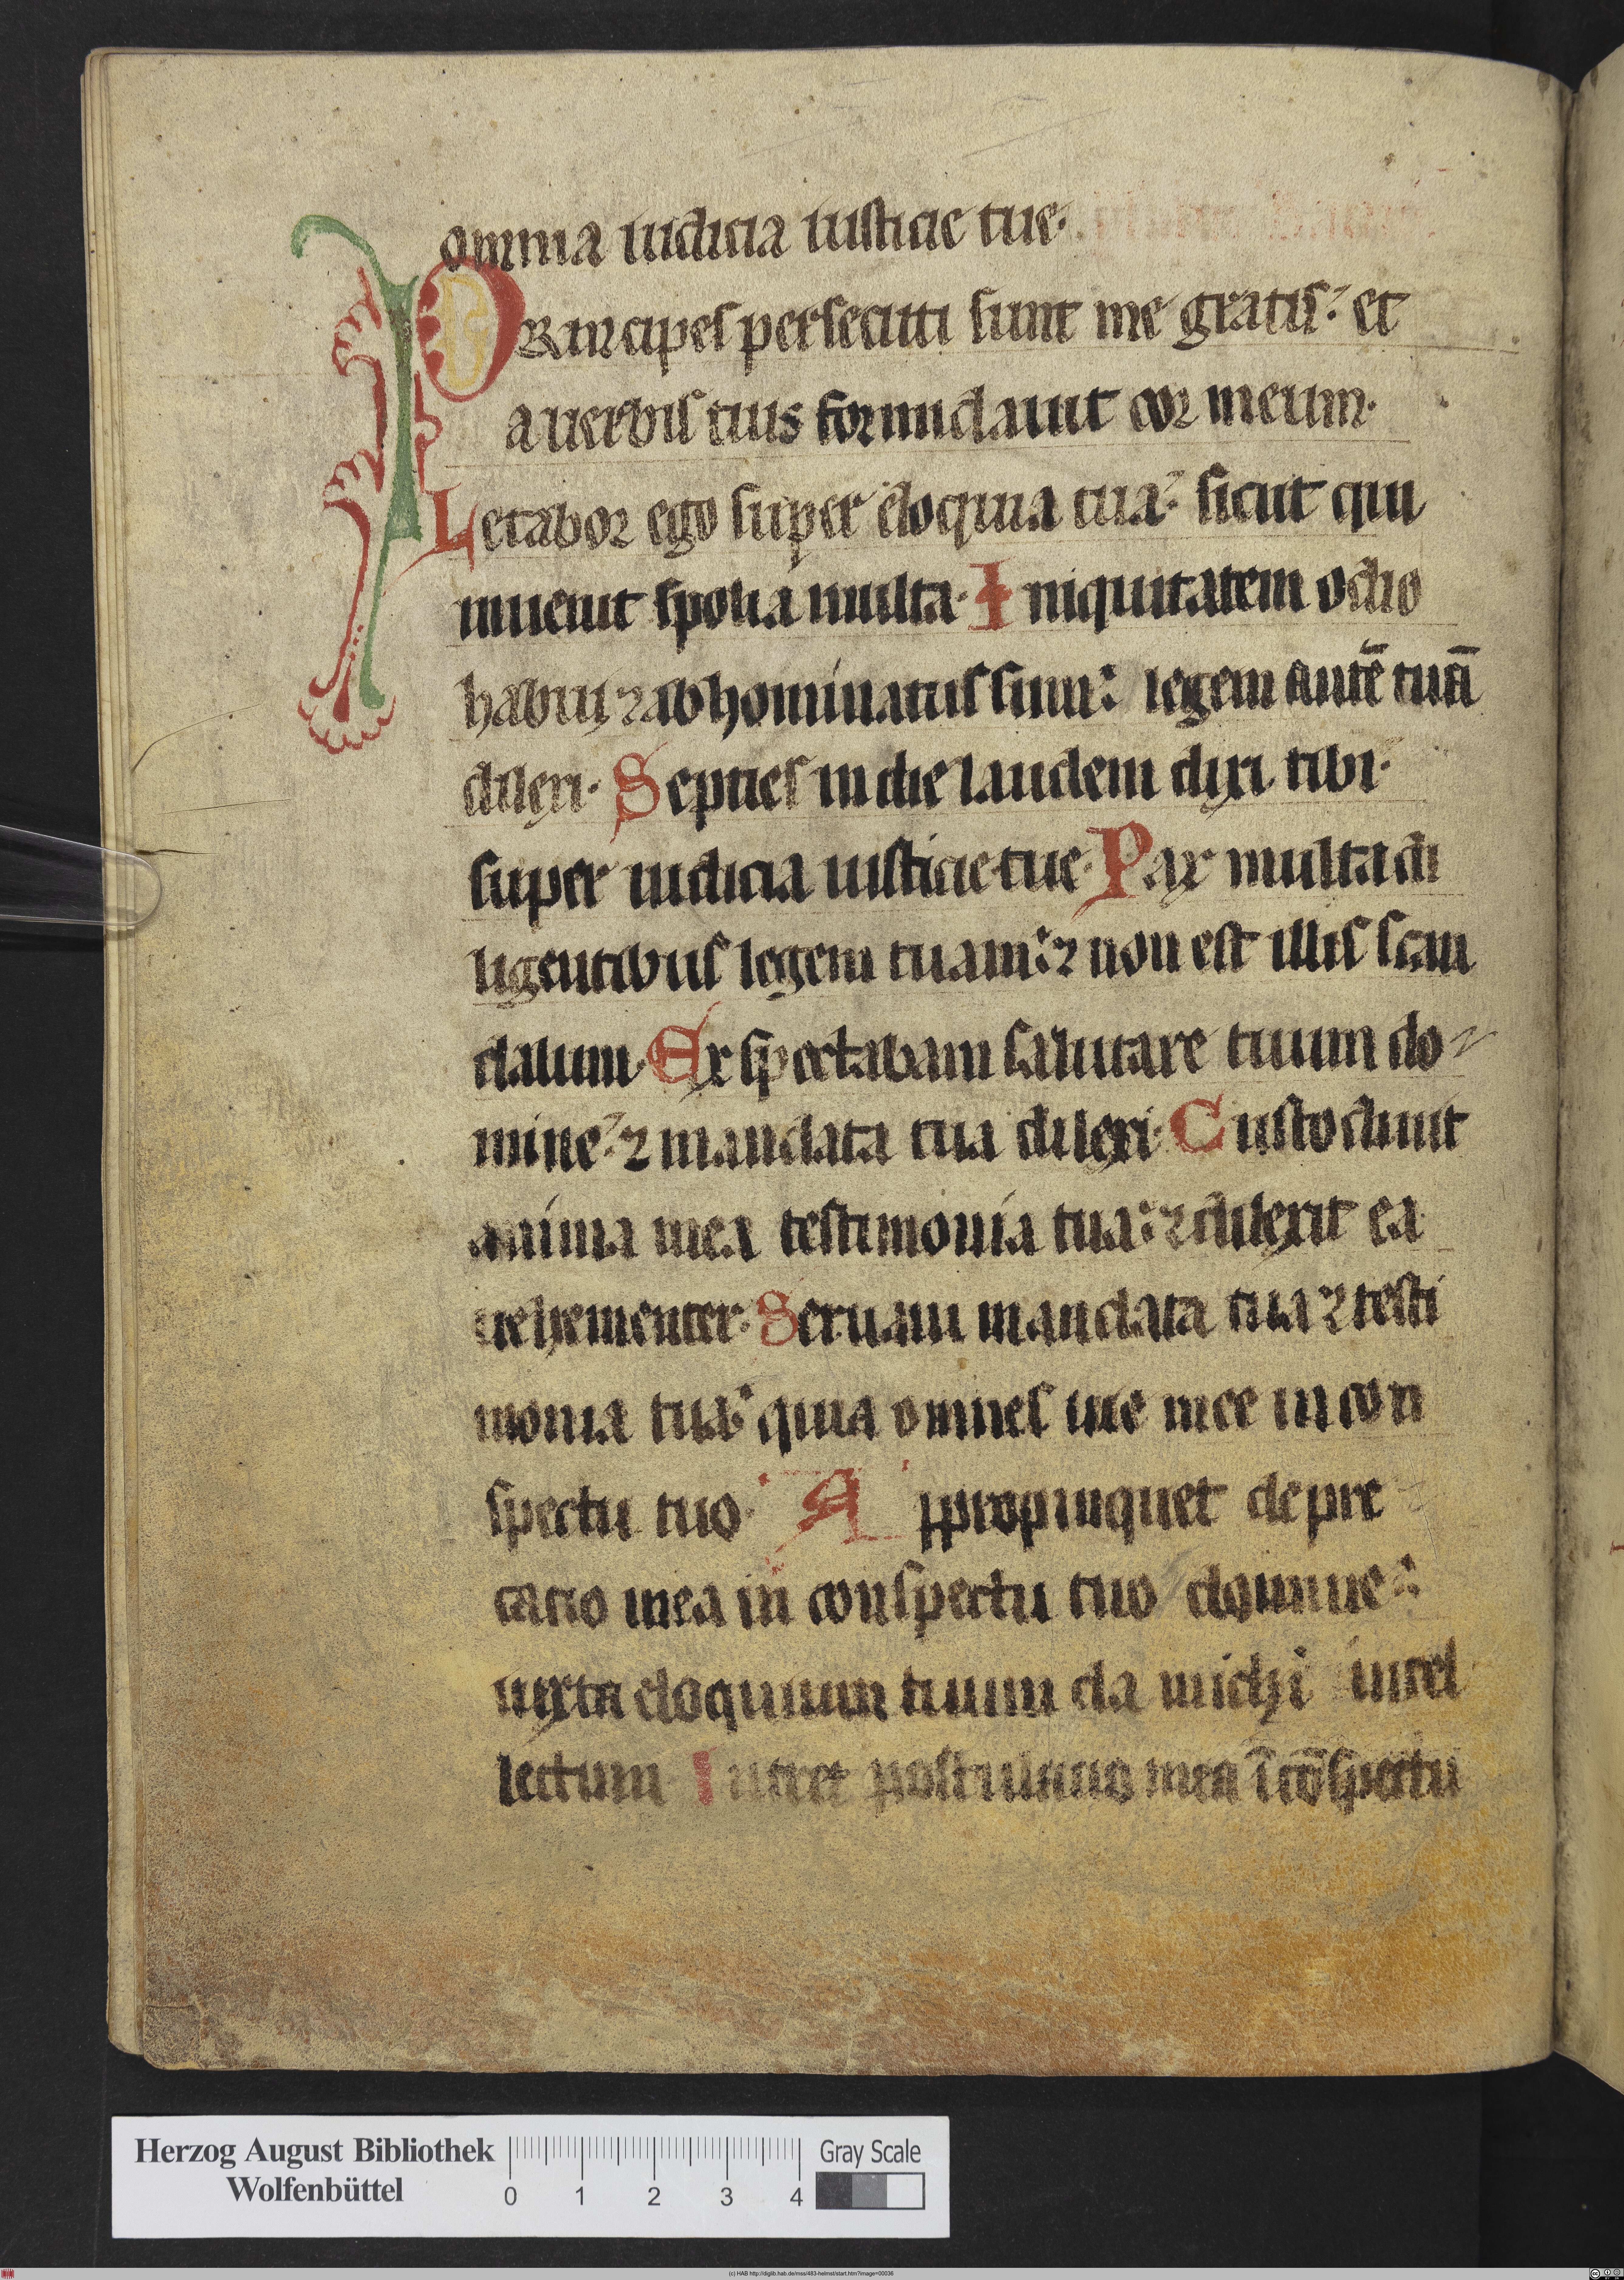 omnia iudicia iusticie tue·
PRincipes persecuti sunt me gratis: et
a uerbis tuis formidauit cor meum·
Letabor ego super eloquia tua: sicut qui
inuenit spolia multa· Iniquitatem odio
habui ⁊ abhominatus sum: legem autē tuā
dilexi· Septies in die laudem dixi tibi·
super iudicia iusticie tue· Pax multa di
ligentibus legem tuam: ⁊ non est illis scan
dalum· Exspectabam salutare tuum do
mine: ⁊ mandata tua dilexi· Custodiuit
anima mea testimonia tua: ⁊ dilexit ea
uehementer· Seruaui mandata tua ⁊ testi
monia tua: quia omnes uie mee in con
spectu tuo· Appropinquet depre
catio mea in conspectu tuo domine:
iuxta eloquium tuum da michi intel
lectum Intret postulatio mea ī cōspectu
Herzog August Bibliothek
Wolfenbüttel
0 1 2 3 4
Gray Scale
(c) HAB http://diglib.hab.de/mss/483-helmst/start.htm?image=00036